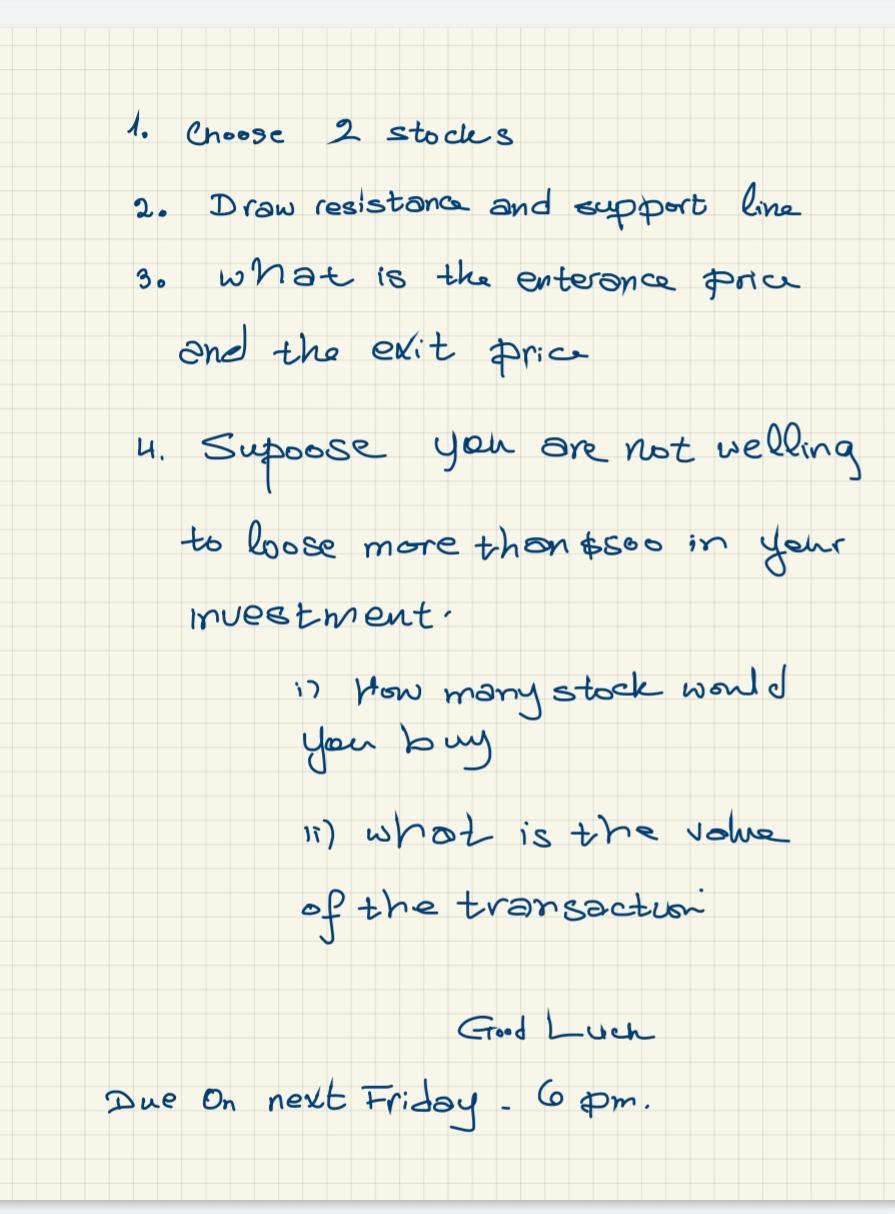 1. Choose 2 stocks
2. Draw resistance and support line
3. what is the enterance price
and the exit price
4. Supoose you are not welling
to loose more than $500 in your
investment.
i) How many stock would
you buy
ii) what is the value
of the transaction
Good Luck
Due On next Friday - 6 pm.